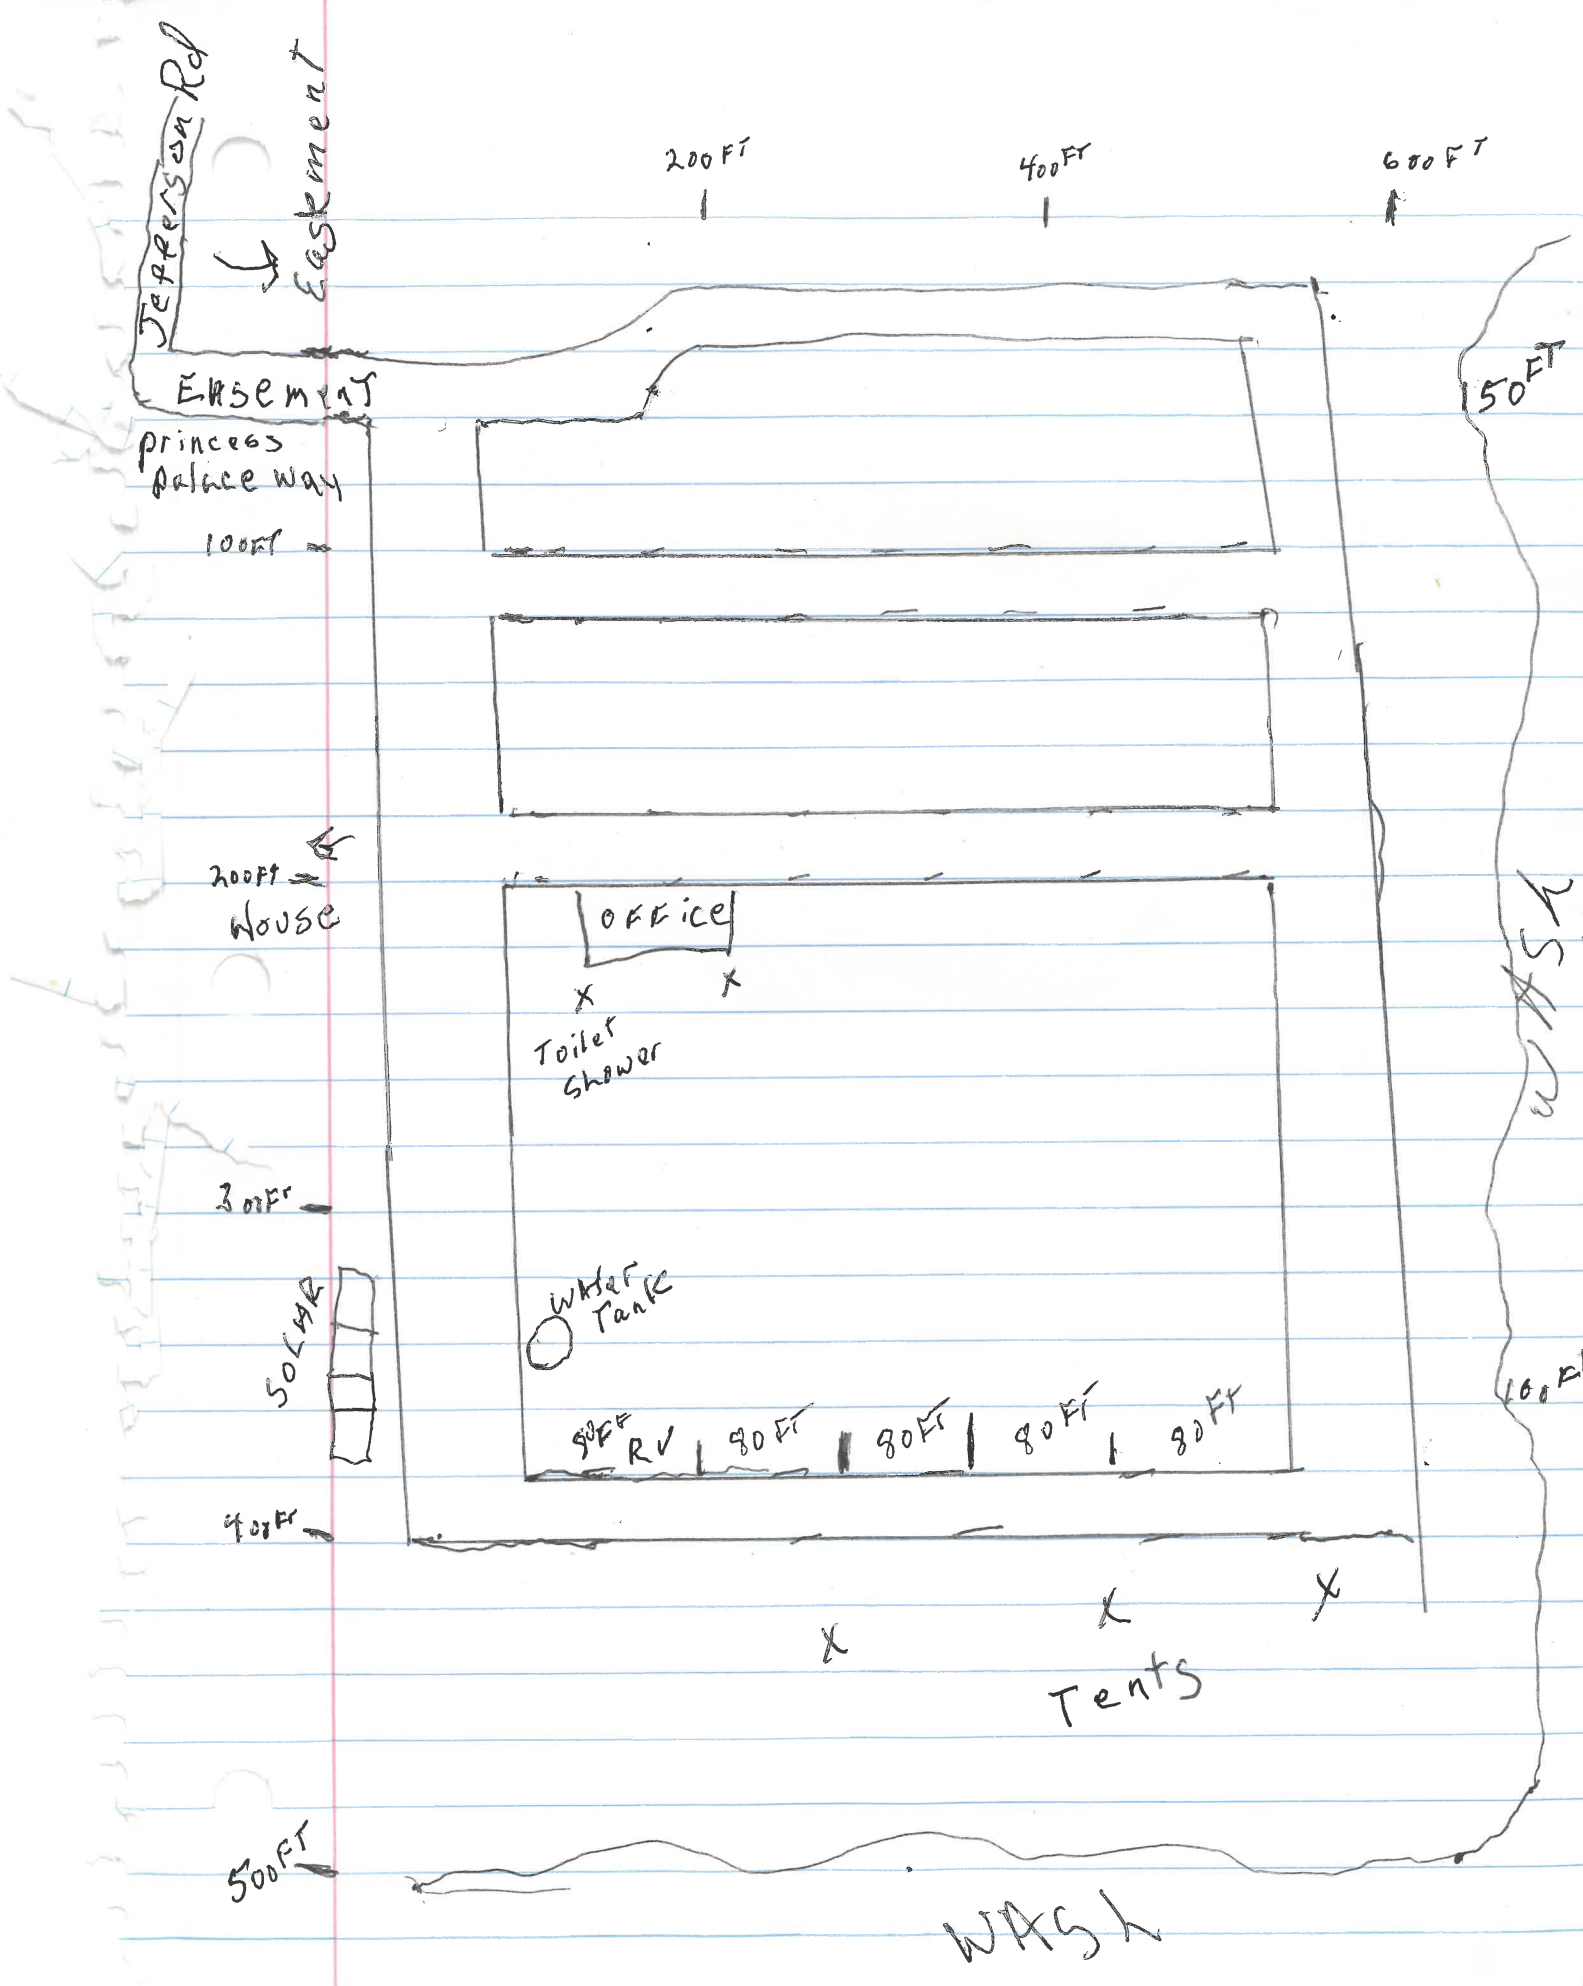 Jefferson Rd
Easkment
200FT
400FT
600FT
EAsemenT
50FT
princess
palace way
100FT
200Ft
House
OFFice
X
X
Toilet
Shower
WASh
300Ft
SOLAR
WAter
Tank
80FT
RV
80FT
80FT
80FT
80FT
100F
400Ft
X
X
X
Tents
500FT
WASh